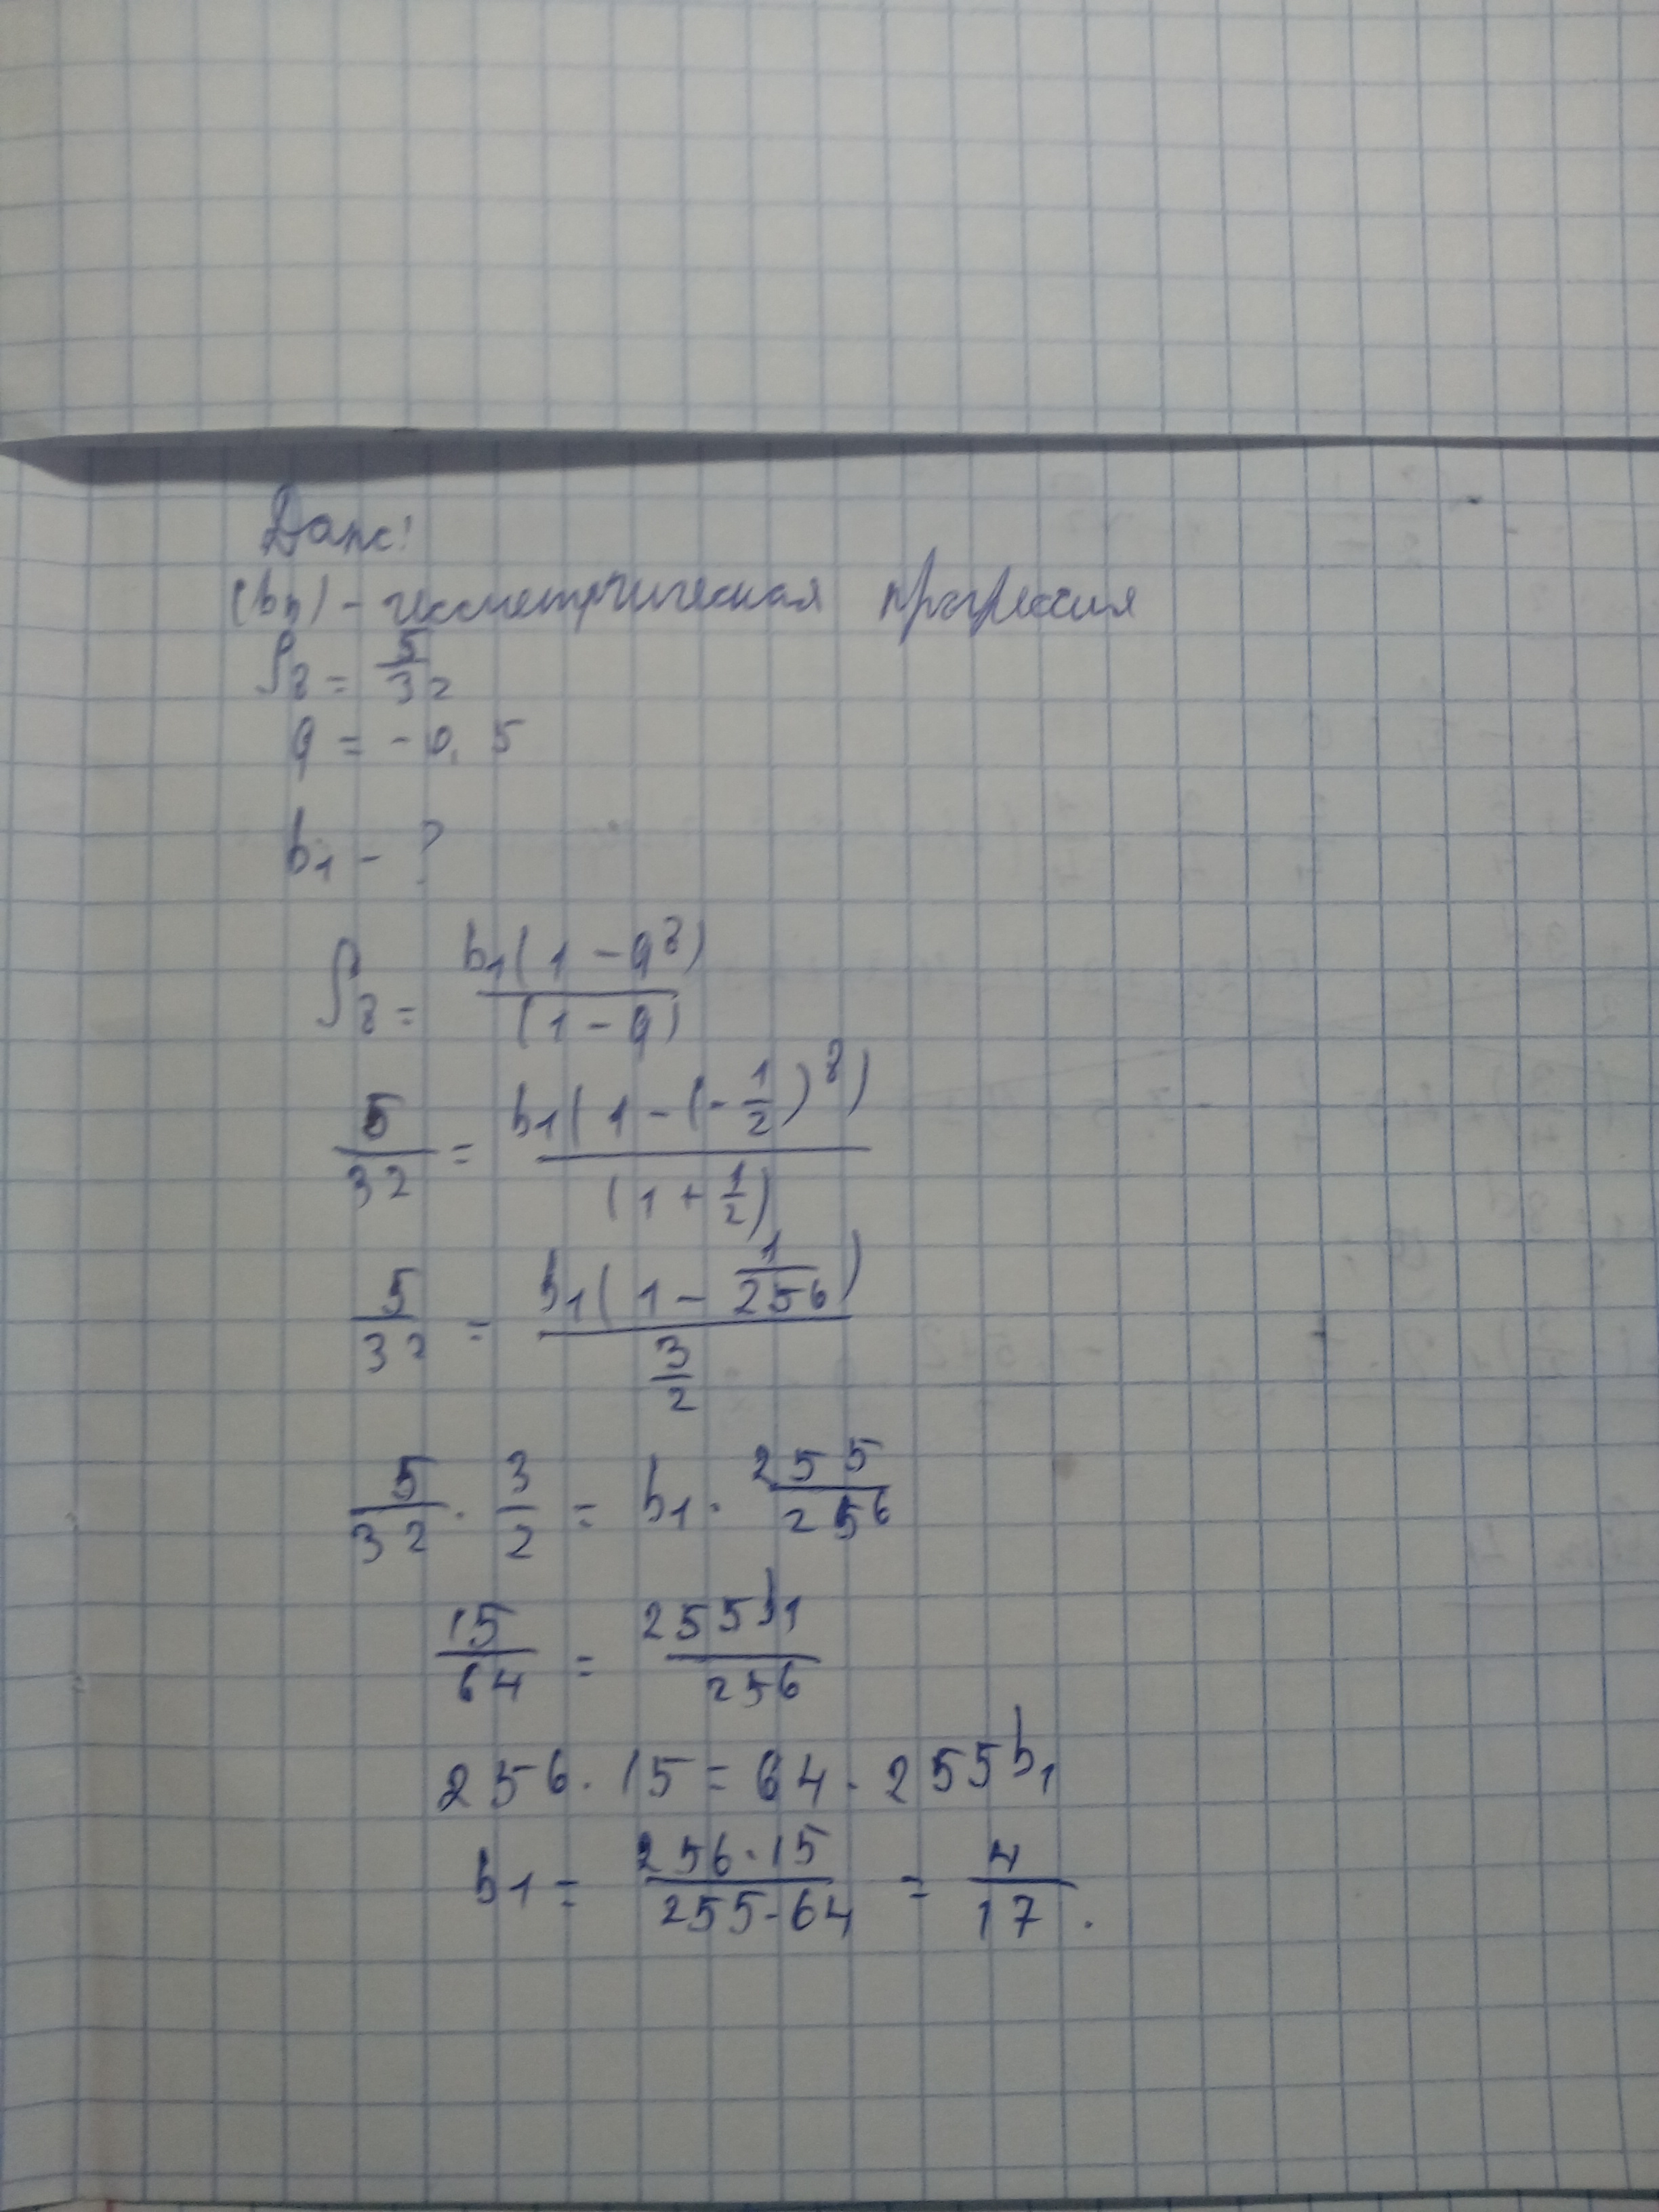 Дано:
(bn) - геометрическая прогрессия
S₈ = 5/32
q = -0,5
b₁ - ?
S₈ = b₁(1 - q⁸)/(1 - q)
5/32 = b₁(1 - (-1/2)⁸)/(1 + 1/2)
5/32 = b₁(1 - 1/256)/(3/2)
5/32 · 3/2 = b₁ · 255/256
15/64 = 255b₁/256
256 · 15 = 64 · 255b₁
b₁ = 256 · 15/255 · 64 = 4/17.